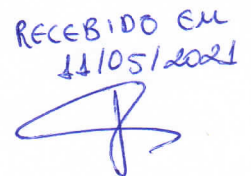 RECEBIDO EM
11/05/2021